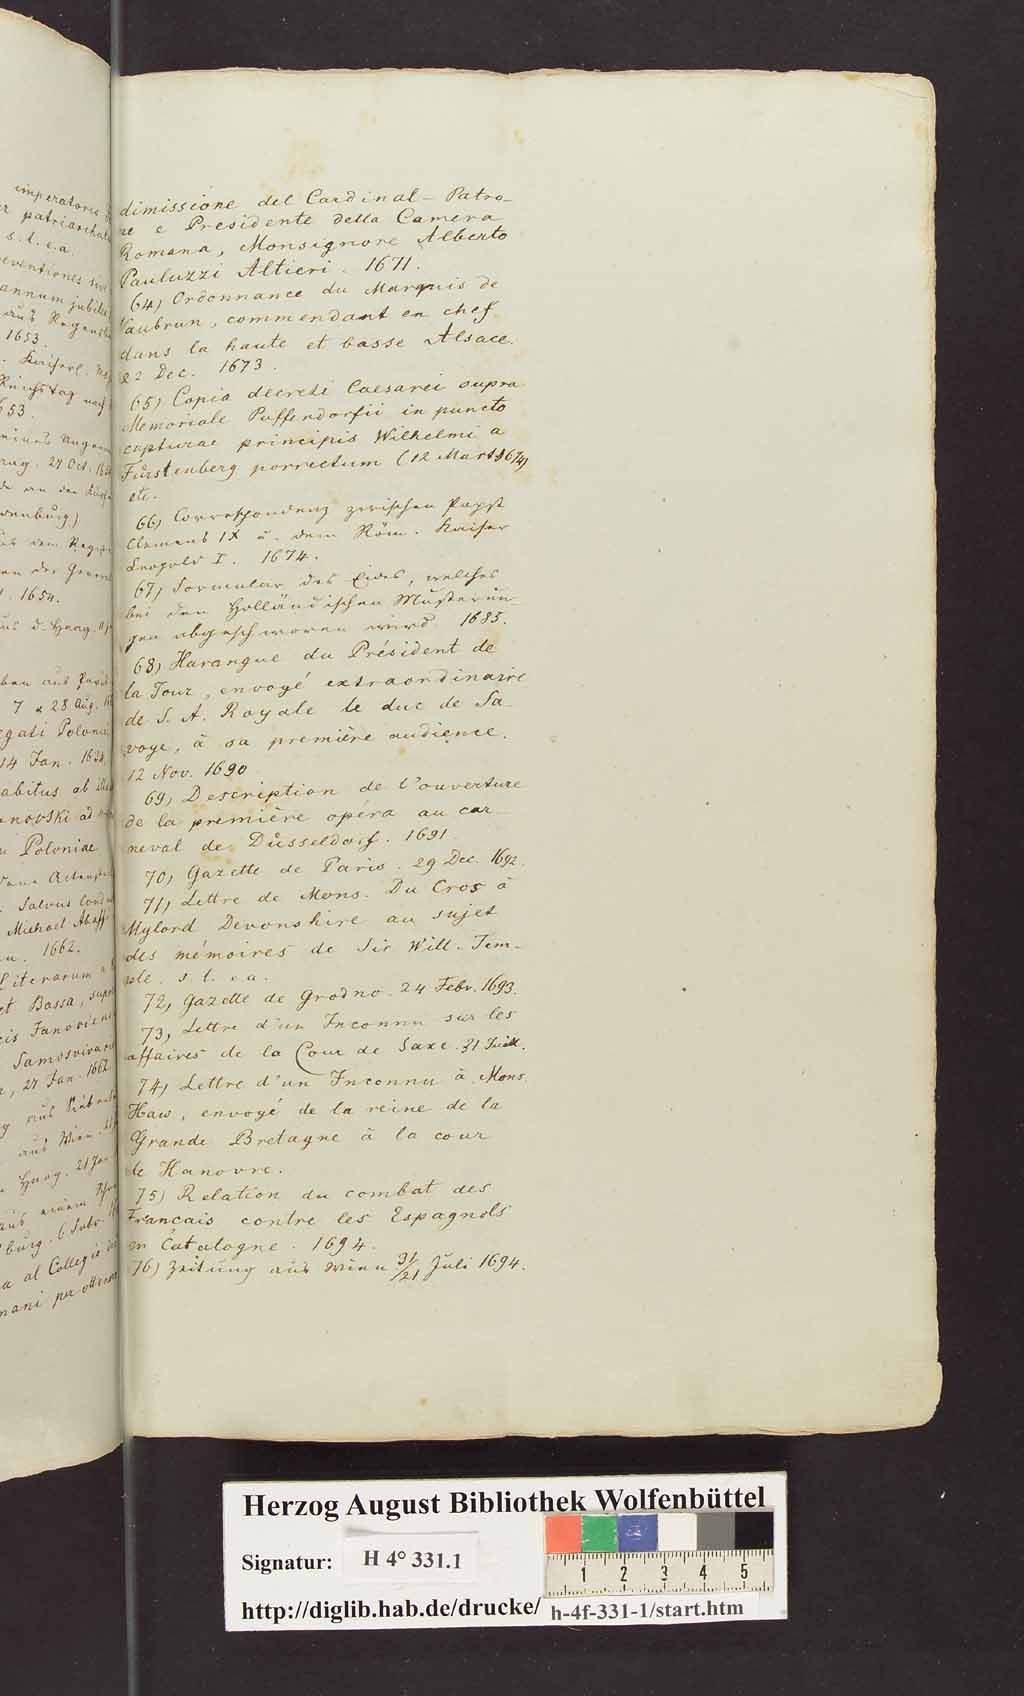 imperatoris
patriarchat
s. l. e. a.
annum jubil
aus Regens
1653.
Kaiserl.
Reichstag nach
653.
27 Oct.
1654.
7 & 28 Aug.
egati Poloni
14 Jan. 1634
habitus ab
anovski ad
Poloniae
Salvus Cond
Michael Abaff
1662.
Literarum
et Bassa,
27 Jan. 1662
aus Wien
Haag. 21 Jan
aus einem
burg. 6
a al Collegio
mani per
dimissione del Cardinal-Patro-
ne e Presidente della Camera
Romana, Monsignore Alberto
Pauluzzi Altieri. 1671.
64) Ordonnance du Marquis de
Vaubrun, commendant en chef
dans la haute et basse Alsace.
22 Dec. 1673.
65) Copia decreti Caesarei supra
Memoriale Puffendorfii in puncto
capturae principis Wilhelmi a
Fürstenberg porrectum (12 Mart 1674)
etc.
66) Correspondenz zwischen Papst
Clemens IX u. dem Röm. Kaiser
Leopold I. 1674.
67) Formular des Eides, welches
bei den Holländischen Musterun-
gen abgeschworen wird 1685.
68) Harangue du Président de
la Tour, envoyé extraordinaire
de S. A. Royale le duc de Sa-
voye, à sa première audience.
12 Nov. 1690
69) Description de l'ouverture
de la première opéra au car-
neval de Düsseldorf. 1691
70) Gazette de Paris. 29 Dec. 1692.
71) Lettre de Mons. Du Cros à
Mylord Devonshire au sujet
des mémoires de Sir Will. Tem-
ple. s. l. e. a.
72) Gazette de Grodno. 24 Febr. 1693.
73) Lettre d'un Inconnu sur les
affaires de la Cour de Saxe. 31 Juill.
74) Lettre d'un Inconnu à Mons
Haw, envoyé de la reine de la
Grande Bretagne à la cour
de Hanovre.
75) Relation du combat des
Francais contre les Espagnols
en Catalogne. 1694.
76) Zeitung aus Wien 31/21 Juli 1694.
Herzog August Bibliothek Wolfenbüttel
Signatur: H 4° 331.1
1 2 3 4 5
http://diglib.hab.de/drucke/ h-4f-331-1/start.htm